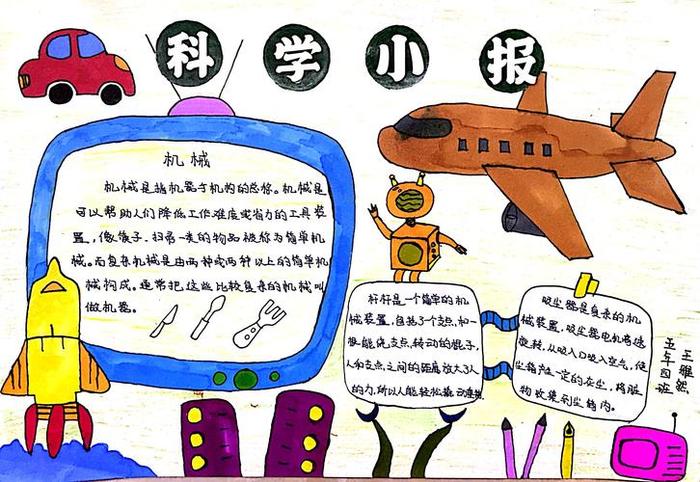 科学小报
机械
机械是指机器与机构的总称。机械是
可以帮助人们降低工作难度或省力的工具装
置，像筷子、扫帚一类的物品被称为简单机
械。而复杂机械是由两种或两种以上的简单机
械构成。通常把这些比较复杂的机械叫
做机器。
杠杆是一个简单的机
械装置，包括了个支点，和一
根能绕支点，转动的棍子，
人和支点，之间的距离放大了人
的力，所以人能轻松撬动重物
吸尘器是复杂的机
械装置，吸尘器电机高速
旋转，从吸入口吸入空气，使
尘箱产生一定的
物收集到尘箱内。
五年四班
王雅